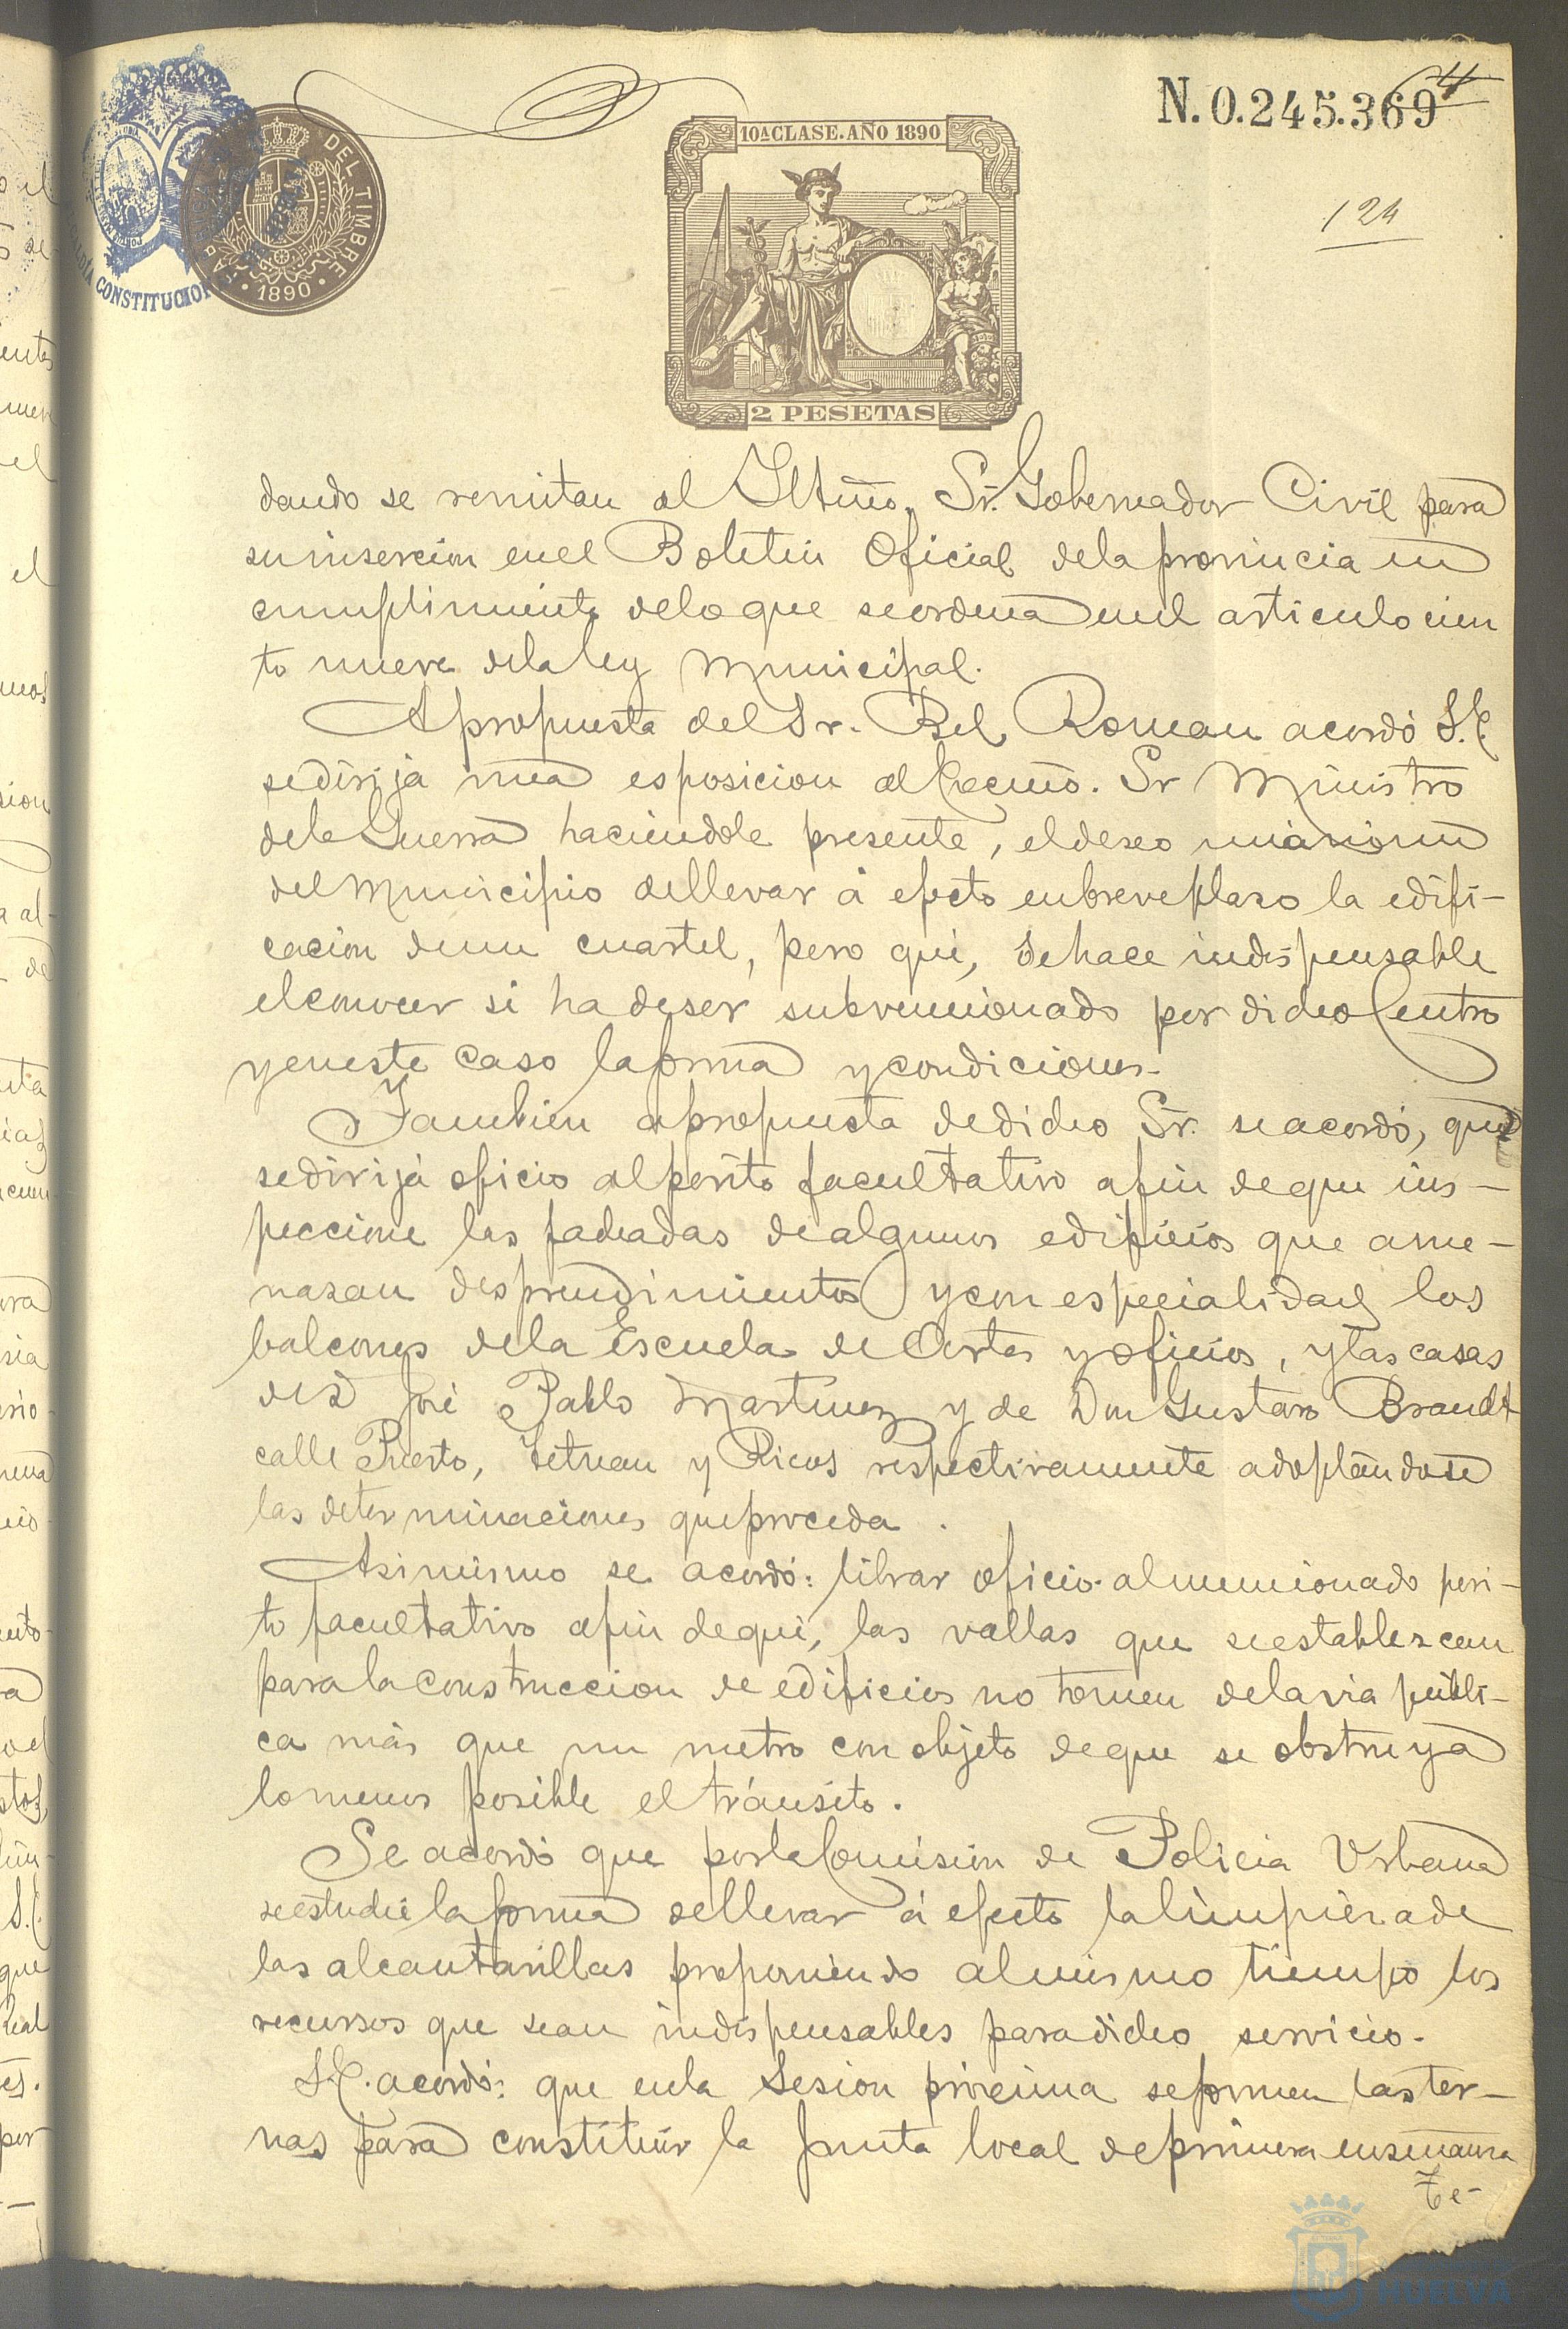 N. 0.245.369
4
124
ALCALDÍA CONSTITUCION
DEL TIMBRE
1890
10ª CLASE. AÑO 1890
2 PESETAS
dando se remitan al Iltmo. Sr. Gobernador Civil para
su insercion en el Boletin Oficial de la provincia en
cumplimiento de lo que se ordena en el articulo cien
to nueve de la ley Municipal.
A propuesta del Sr. Bel Roman acordó S.C.
se dirija una esposicion al Excmo. Sr Ministro
de la Guerra haciendole presente, el deseo
del Municipio de llevar á efecto en breve plazo la edifi-
cacion de un cuartel, pero que, se hace indispensable
el conocer si ha de ser subvencionado por dicho Centro
y en este caso la forma y condiciones.
Tambien a propuesta de dicho Sr. se acordó, que
se dirija oficio al perito facultativo a fin de que ins-
peccione las fachadas de algunos edificios que ame-
nazan desprendimientos y con especialidad los
balcones de la Escuela de Artes y oficios, y las casas
de D José Pablo Martinez y de Don Gustavo Brandt
calle Puerto, Tetuan y Ricos respectivamente adoptandose
las determinaciones que proceda.
Asimismo se acordó: librar oficio al mencionado peri-
to facultativo a fin de que, las vallas que se establezcan
para la construccion de edificios no tomen de la via públi-
ca más que un metro con objeto de que se obstruya
lo menos posible el tránsito.
Se acordó que por la Comision de Policia Urbana
se estudie la forma de llevar á efecto la limpieza de
las alcantarillas proponiendo al mismo tiempo los
recursos que sean indispensables para dicho servicio.
S.C. acordó: que en la Sesion próxima se formen las ter-
nas para constituir la junta local de primera enseñanza
Te-
HUELVA